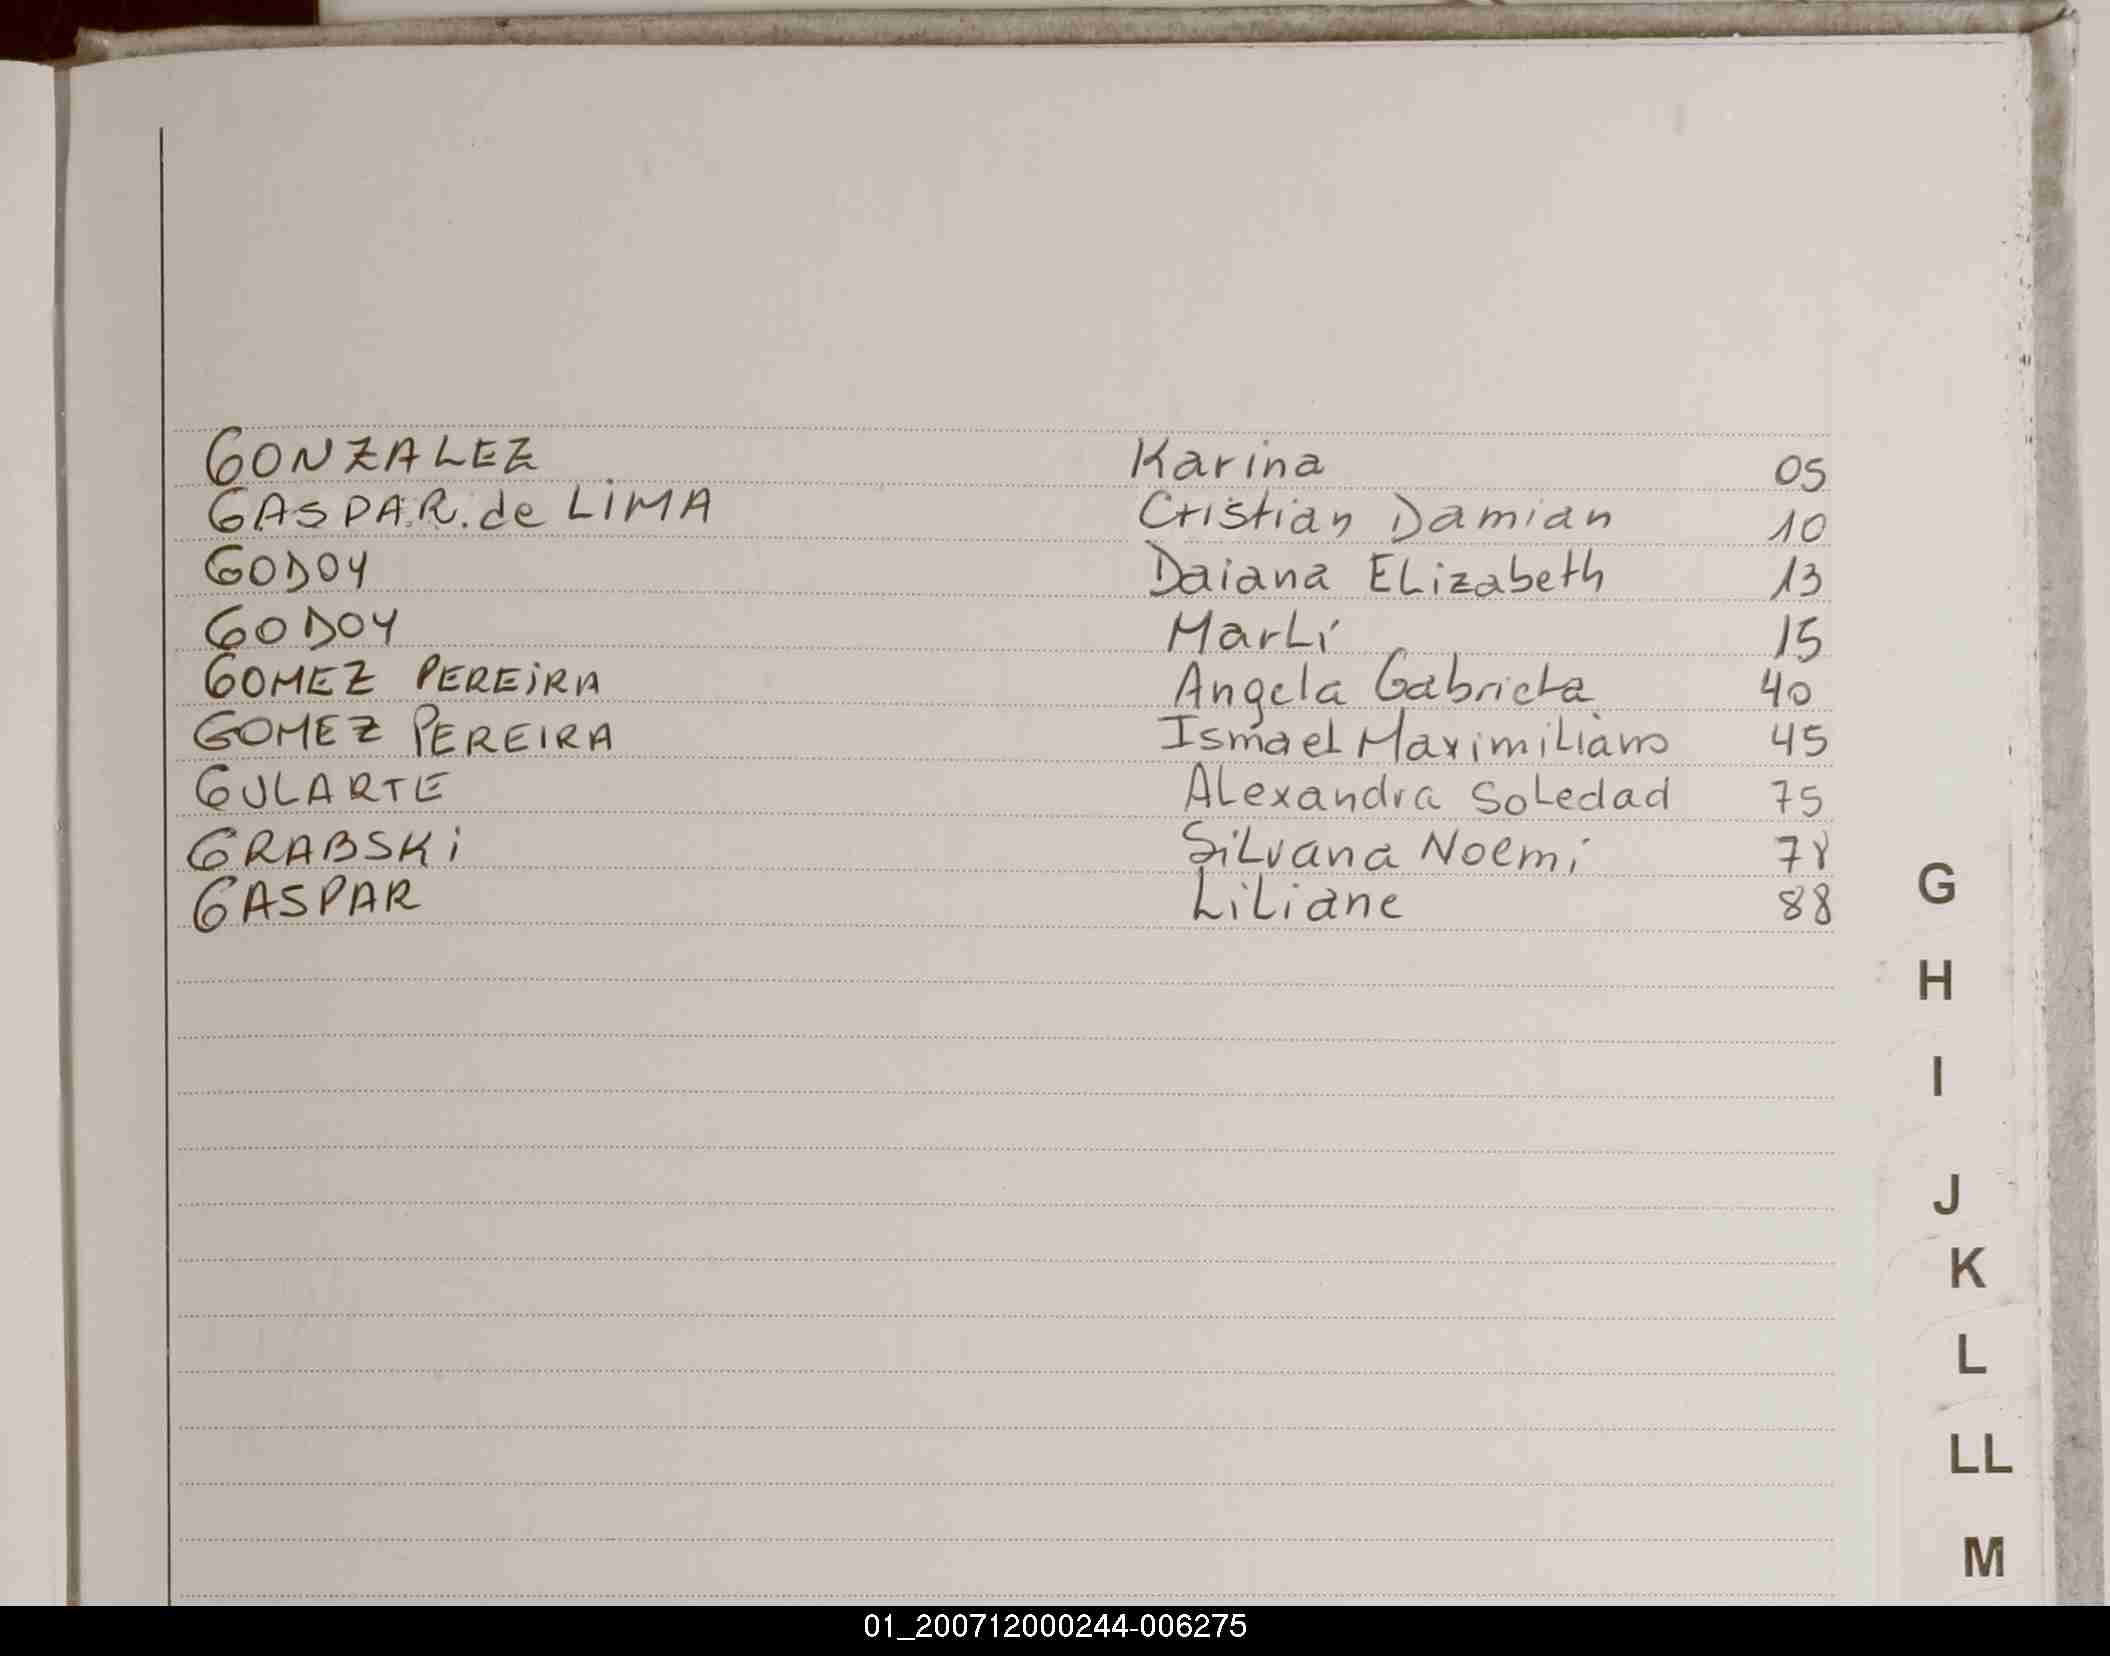 GONZALEZ Karina 05
GASPAR. de LiMA Cristian Damian 10
GODOY Daiana ELizabeth 13
GODOY MarLi 15
GOMEZ PEREiRA Angela GabrieLa 40
GOMEZ PEREIRA IsmaeL MaximiLiano 45
GULARTE ALexandra SoLedad 75
GRABSKi SiLvana Noemi 78
GASPAR LiLiane 88
G
H
I
J
K
L
LL
M
01_200712000244-006275